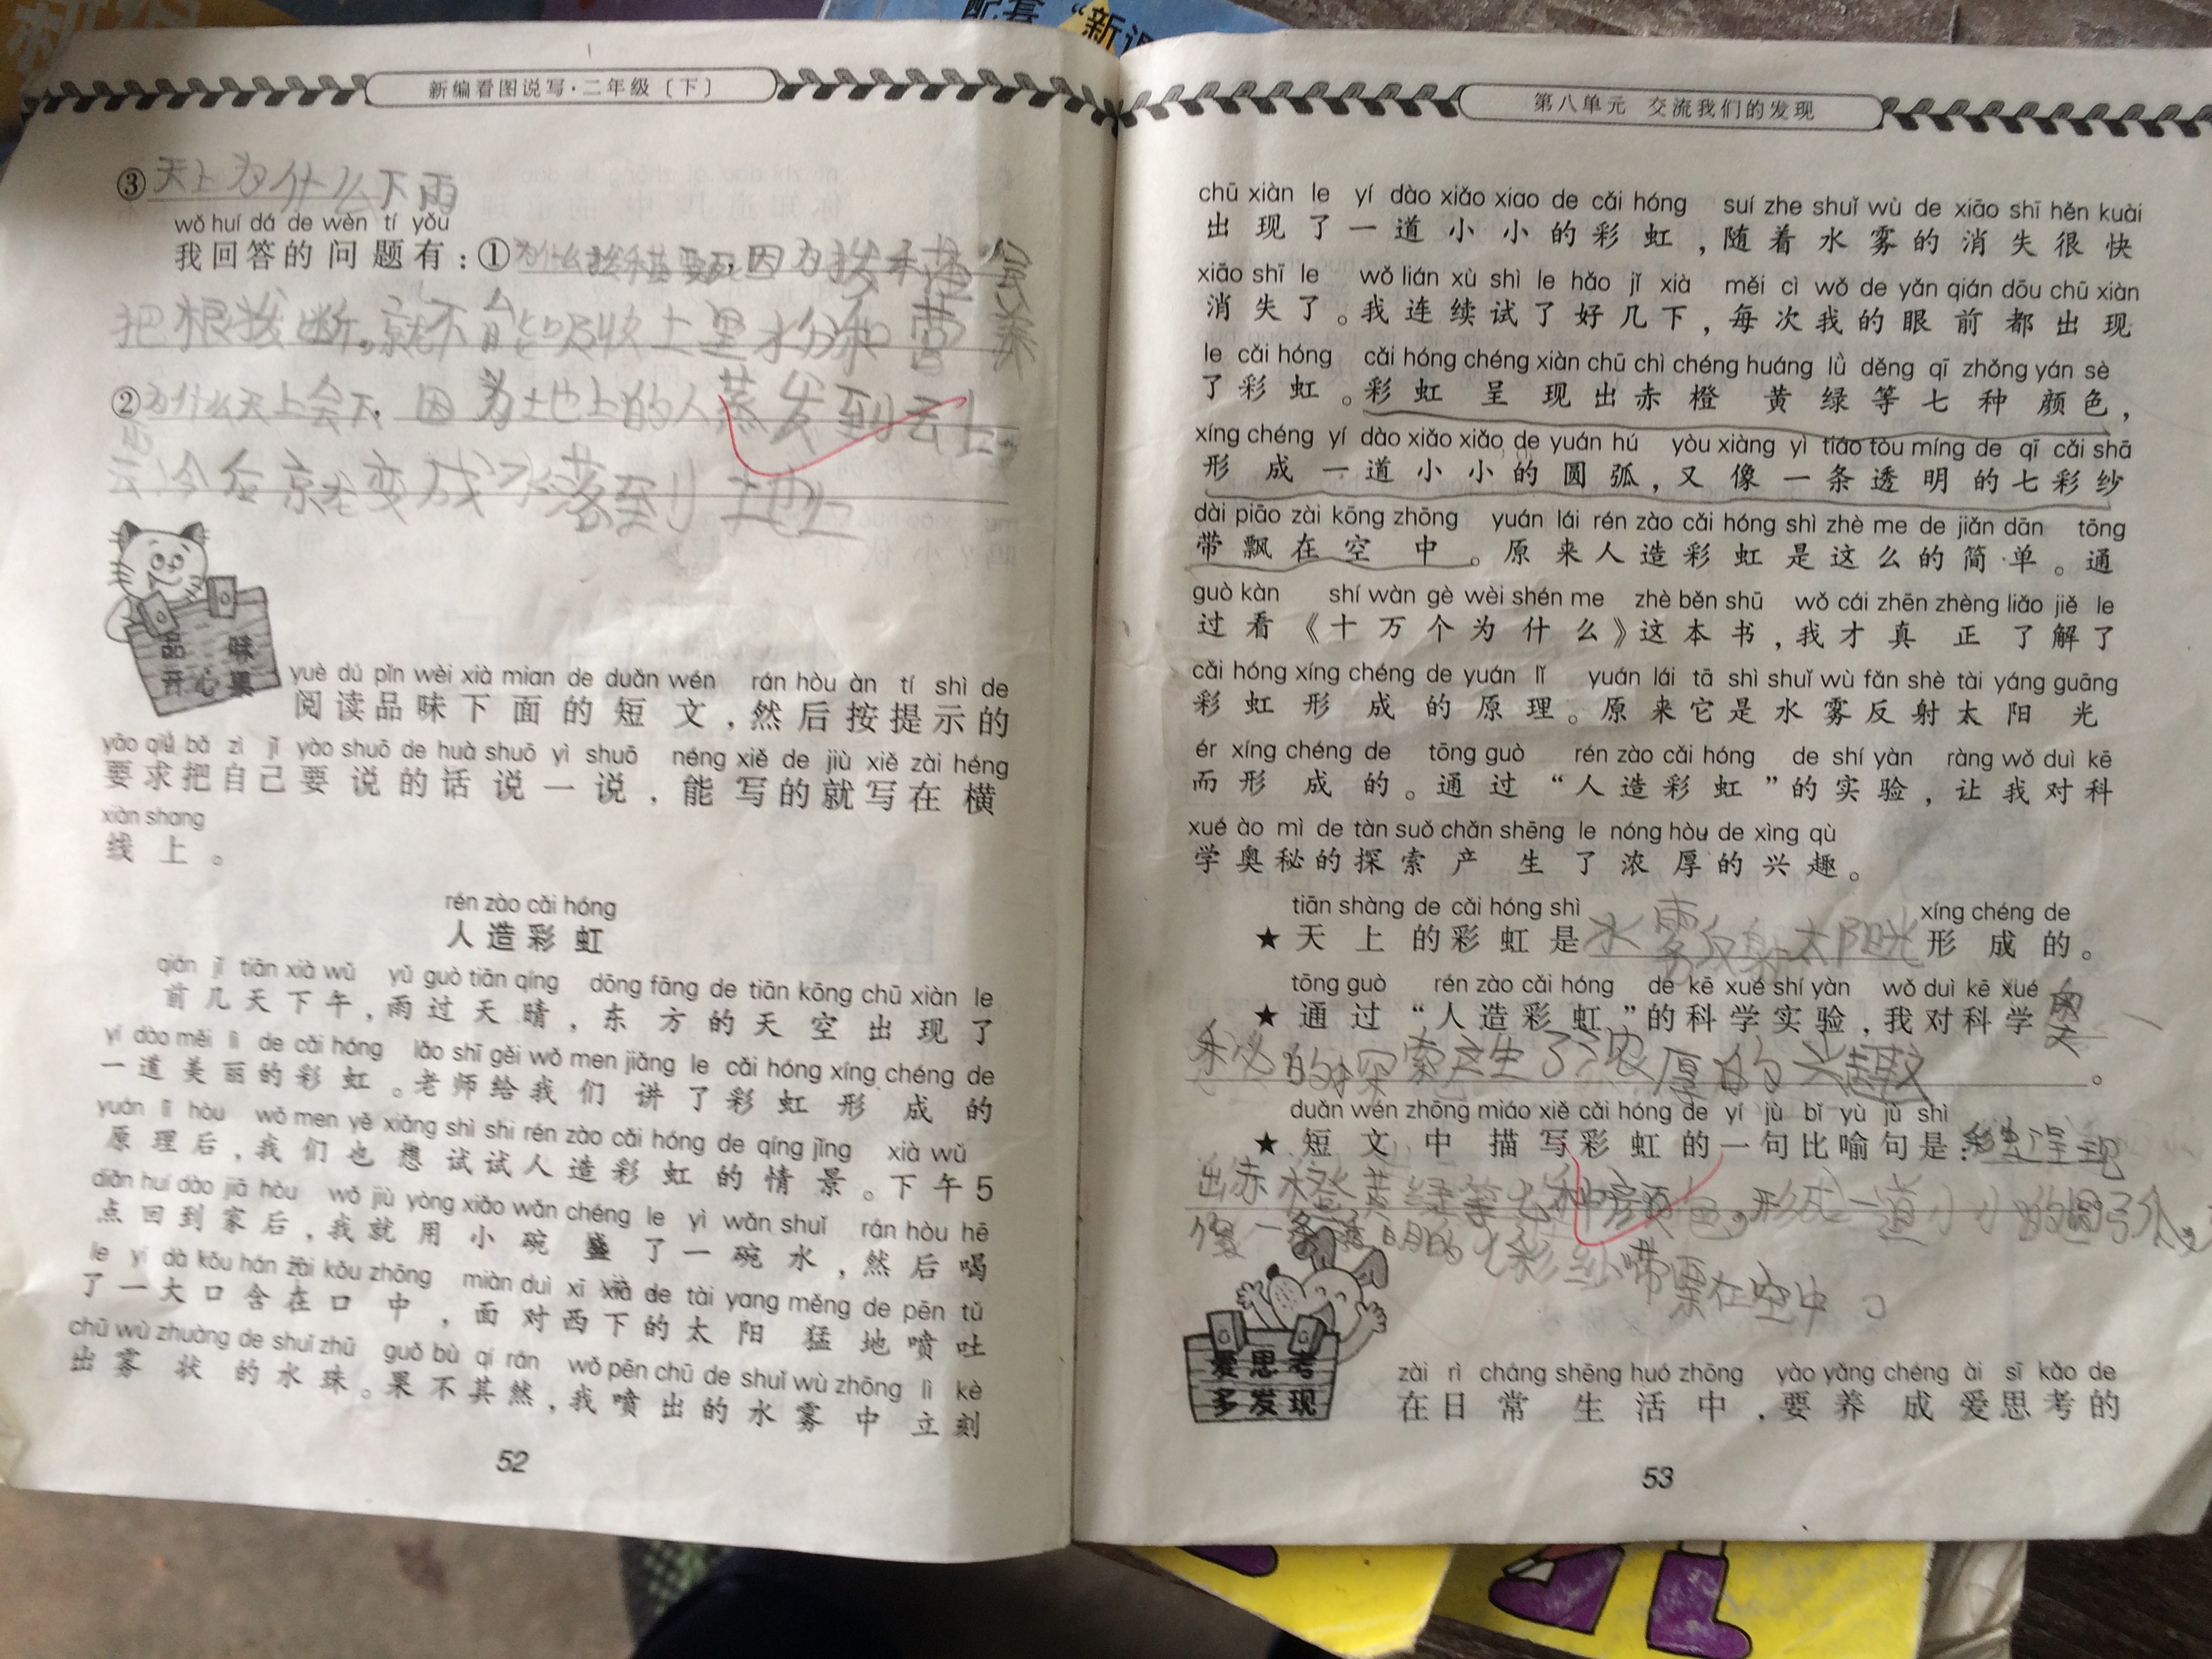 配套“新课
新编看图说写·二年级〔下〕
③天上为什么下雨
wǒ huí dá de wèn tí yǒu
我回答的问题有：①为什么拔禾苗要死，因为拔禾苗会
把根拔断。就不能吸收土里水分和营养
②为什么天上会下，因为地上的人蒸发到云上。
云冷后就变成水落到地上
品味
开心果
yuè dú pǐn wèi xià mian de duǎn wén rán hòu àn tí shì de
阅读品味下面的短文，然后按提示的
yāo qiú bǎ zì jǐ yào shuō de huà shuō yì shuō néng xiě de jiù xiě zài héng
要求把自己要说的话说一说，能写的就写在横
xiàn shang
线上。
rén zào cǎi hóng
人造彩虹
qián jǐ tiān xià wǔ yǔ guò tiān qíng dōng fāng de tiān kōng chū xiàn le
前几天下午，雨过天晴，东方的天空出现了
yí dào měi lì de cǎi hóng lǎo shī gěi wǒ men jiǎng le cǎi hóng xíng chéng de
一道美丽的彩虹。老师给我们讲了彩虹形成的
yuán lǐ hòu wǒ men yě xiǎng shì shi rén zào cǎi hóng de qíng jǐng xià wǔ
原理后，我们也想试试人造彩虹的情景。下午5
diǎn huí dào jiā hòu wǒ jiù yòng xiǎo wǎn chéng le yì wǎn shuǐ rán hòu hē
点回到家后，我就用小碗盛了一碗水，然后喝
le yí dà kǒu hán zài kǒu zhōng miàn duì xī xià de tài yang měng de pēn tǔ
了一大口含在口中，面对西下的太阳猛地喷吐
chū wù zhuàng de shuǐ zhū guǒ bù qí rán wǒ pēn chū de shuǐ wù zhōng lì kè
出雾状的水珠。果不其然，我喷出的水雾中立刻
52
第八单元 交流我们的发现
chū xiàn le yí dào xiǎo xiao de cǎi hóng suí zhe shuǐ wù de xiāo shī hěn kuài
出现了一道小小的彩虹，随着水雾的消失很快
xiāo shī le wǒ lián xù shì le hǎo jǐ xià měi cì wǒ de yǎn qián dōu chū xiàn
消失了。我连续试了好几下，每次我的眼前都出现
le cǎi hóng cǎi hóng chéng xiàn chū chì chéng huáng lǜ děng qī zhǒng yán sè
了彩虹。彩虹呈现出赤橙黄绿等七种颜色，
xíng chéng yí dào xiǎo xiǎo de yuán hú yòu xiàng yì tiáo tòu míng de qī cǎi shā
形成一道小小的圆弧，又像一条透明的七彩纱
dài piāo zài kōng zhōng yuán lái rén zào cǎi hóng shì zhè me de jiǎn dān tōng
带飘在空中。原来人造彩虹是这么的简单。通
guò kàn shí wàn gè wèi shén me zhè běn shū wǒ cái zhēn zhèng liǎo jiě le
过看《十万个为什么》这本书，我才真正了解了
cǎi hóng xíng chéng de yuán lǐ yuán lái tā shì shuǐ wù fǎn shè tài yáng guāng
彩虹形成的原理。原来它是水雾反射太阳光
ér xíng chéng de tōng guò rén zào cǎi hóng de shí yàn ràng wǒ duì kē
而形成的。通过“人造彩虹”的实验，让我对科
xué ào mì de tàn suǒ chǎn shēng le nóng hòu de xìng qù
学奥秘的探索产生了浓厚的兴趣。
tiān shàng de cǎi hóng shì xíng chéng de
★天上的彩虹是水雾反射太阳光形成的。
tōng guò rén zào cǎi hóng de kē xué shí yàn wǒ duì kē xué
★通过“人造彩虹”的科学实验，我对科学奥
秘的探索产生了浓厚的兴趣。
duǎn wén zhōng miáo xiě cǎi hóng de yí jù bǐ yù jù shì
★短文中描写彩虹的一句比喻句是：彩虹呈现
出赤橙黄绿等七种颜色，形成一道小小的圆弧，又
像一条透明的七彩纱带飘在空中。
爱思考
多发现
zài rì cháng shēng huó zhōng yào yǎng chéng ài sī kǎo de
在日常生活中，要养成爱思考的
53